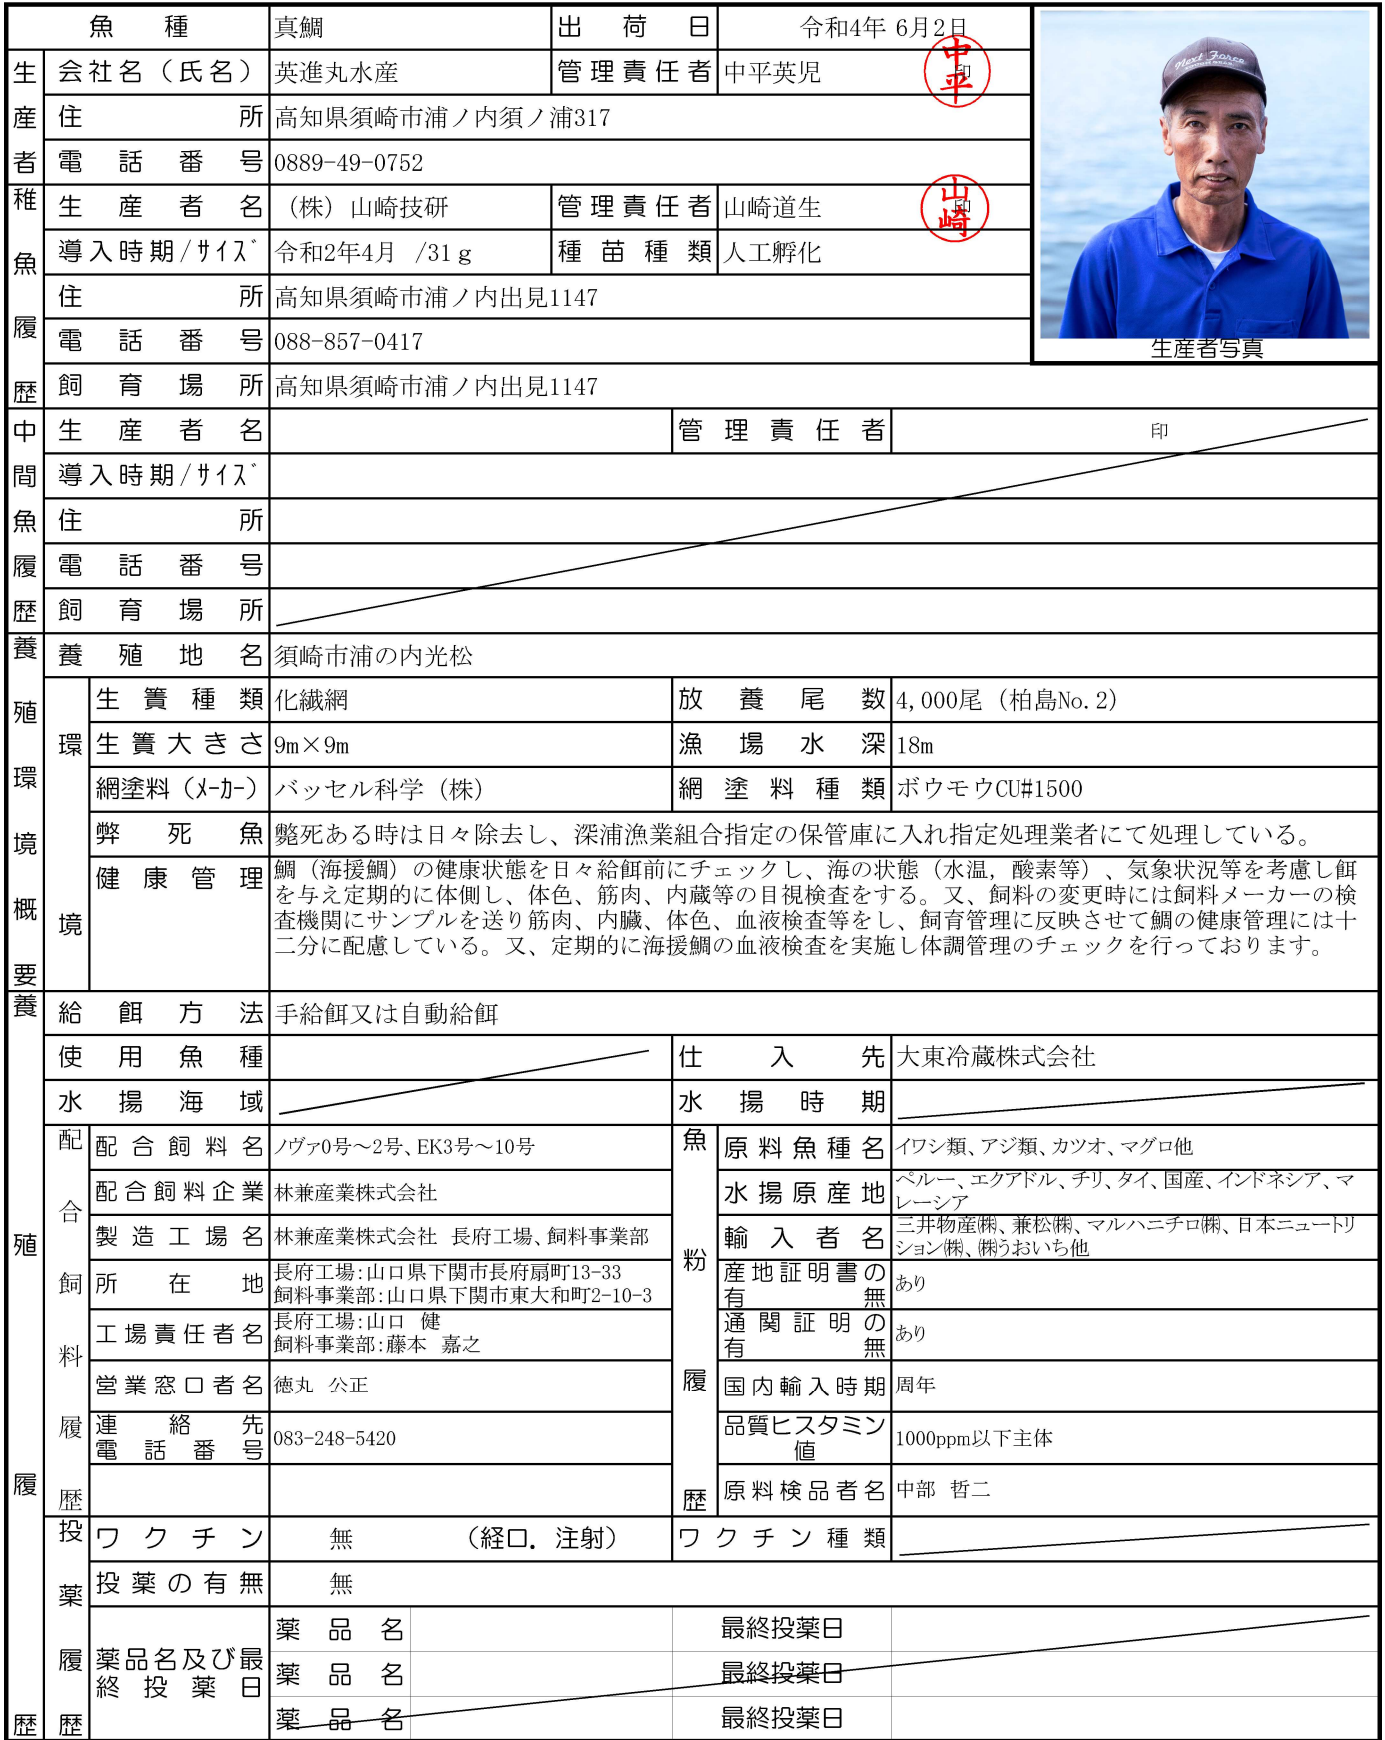 魚種 真鯛 出荷日 令和4年 6月2日
生産者
会社名（氏名） 英進丸水産 管理責任者 中平英児 印 中平
住所 高知県須崎市浦ノ内須ノ浦317
電話番号 0889-49-0752
Next Force
生産者写真
稚魚履歴
生産者名 （株）山崎技研 管理責任者 山崎道生 印 山崎
導入時期/サイズ 令和2年4月 /31ｇ 種苗種類 人工孵化
住所 高知県須崎市浦ノ内出見1147
電話番号 088-857-0417
飼育場所 高知県須崎市浦ノ内出見1147
中間魚履歴
生産者名 管理責任者 印
導入時期/サイズ
住所
電話番号
飼育場所
養殖環境概要
養殖地名 須崎市浦の内光松
環境
生簀種類 化繊網 放養尾数 4,000尾（柏島No.2）
生簀大きさ 9m×9m 漁場水深 18m
網塗料（メーカー） バッセル科学（株） 網塗料種類 ボウモウCU#1500
弊死魚 斃死ある時は日々除去し、深浦漁業組合指定の保管庫に入れ指定処理業者にて処理している。
健康管理 鯛（海援鯛）の健康状態を日々給餌前にチェックし、海の状態（水温，酸素等）、気象状況等を考慮し餌
を与え定期的に体側し、体色、筋肉、内蔵等の目視検査をする。又、飼料の変更時には飼料メーカーの検
査機関にサンプルを送り筋肉、内臓、体色、血液検査等をし、飼育管理に反映させて鯛の健康管理には十
二分に配慮している。又、定期的に海援鯛の血液検査を実施し体調管理のチェックを行っております。
養殖履歴
給餌方法 手給餌又は自動給餌
使用魚種 仕入先 大東冷蔵株式会社
水揚海域 水揚時期
配合飼料履歴
配合飼料名 ノヴァ0号～2号、EK3号～10号
配合飼料企業 林兼産業株式会社
製造工場名 林兼産業株式会社 長府工場、飼料事業部
所在地 長府工場:山口県下関市長府扇町13-33
飼料事業部:山口県下関市東大和町2-10-3
工場責任者名 長府工場:山口 健
飼料事業部:藤本 嘉之
営業窓口者名 徳丸 公正
連絡先
電話番号 083-248-5420
魚粉履歴
原料魚種名 イワシ類、アジ類、カツオ、マグロ他
水揚原産地 ペルー、エクアドル、チリ、タイ、国産、インドネシア、マ
レーシア
輸入者名 三井物産㈱、兼松㈱、マルハニチロ㈱、日本ニュートリ
ション㈱、㈱うおいち他
産地証明書の
有無 あり
通関証明の
有無 あり
国内輸入時期 周年
品質ヒスタミン
値 1000ppm以下主体
原料検品者名 中部 哲二
投薬履歴
ワクチン 無 （経口．注射） ワクチン種類
投薬の有無 無
薬品名及び最
終投薬日
薬品名 最終投薬日
薬品名 最終投薬日
薬品名 最終投薬日